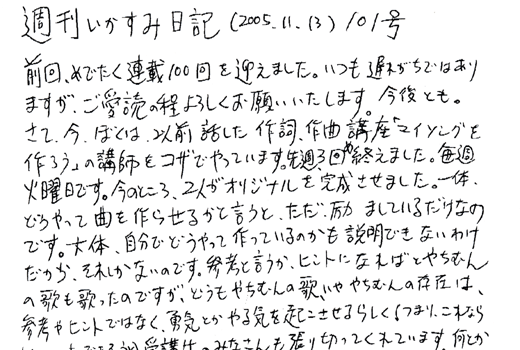 週刊いかすみ日記 (2005.11.13) 101号
前回、めでたく連載100回を迎えました。いつも遅れがちではあり
ますが、ご愛読の程よろしくお願いいたします。今後とも。
さて、今、ぼくは、以前話した作詞、作曲講座「マイソングを
作ろう」の講師をコザでやっています。先週、3回目終えました。毎週
火曜日です。今のところ、2人がオリジナルを完成させました。一体、
どうやって曲を作らせるかと言うと、ただ、励ましているだけなの
です。大体、自分でどうやって作っているのかも説明できないわけ
だから、それしかないのです。参考と言うか、ヒントになればとやちむん
の歌も歌ったのですが、どうもやちむんの歌、いややちむんの存在は、
参考やヒントではなく、勇気とかやる気を起こさせるらしく、つまり、これなら
受講生のみなさんも張り切ってくれています。何とか